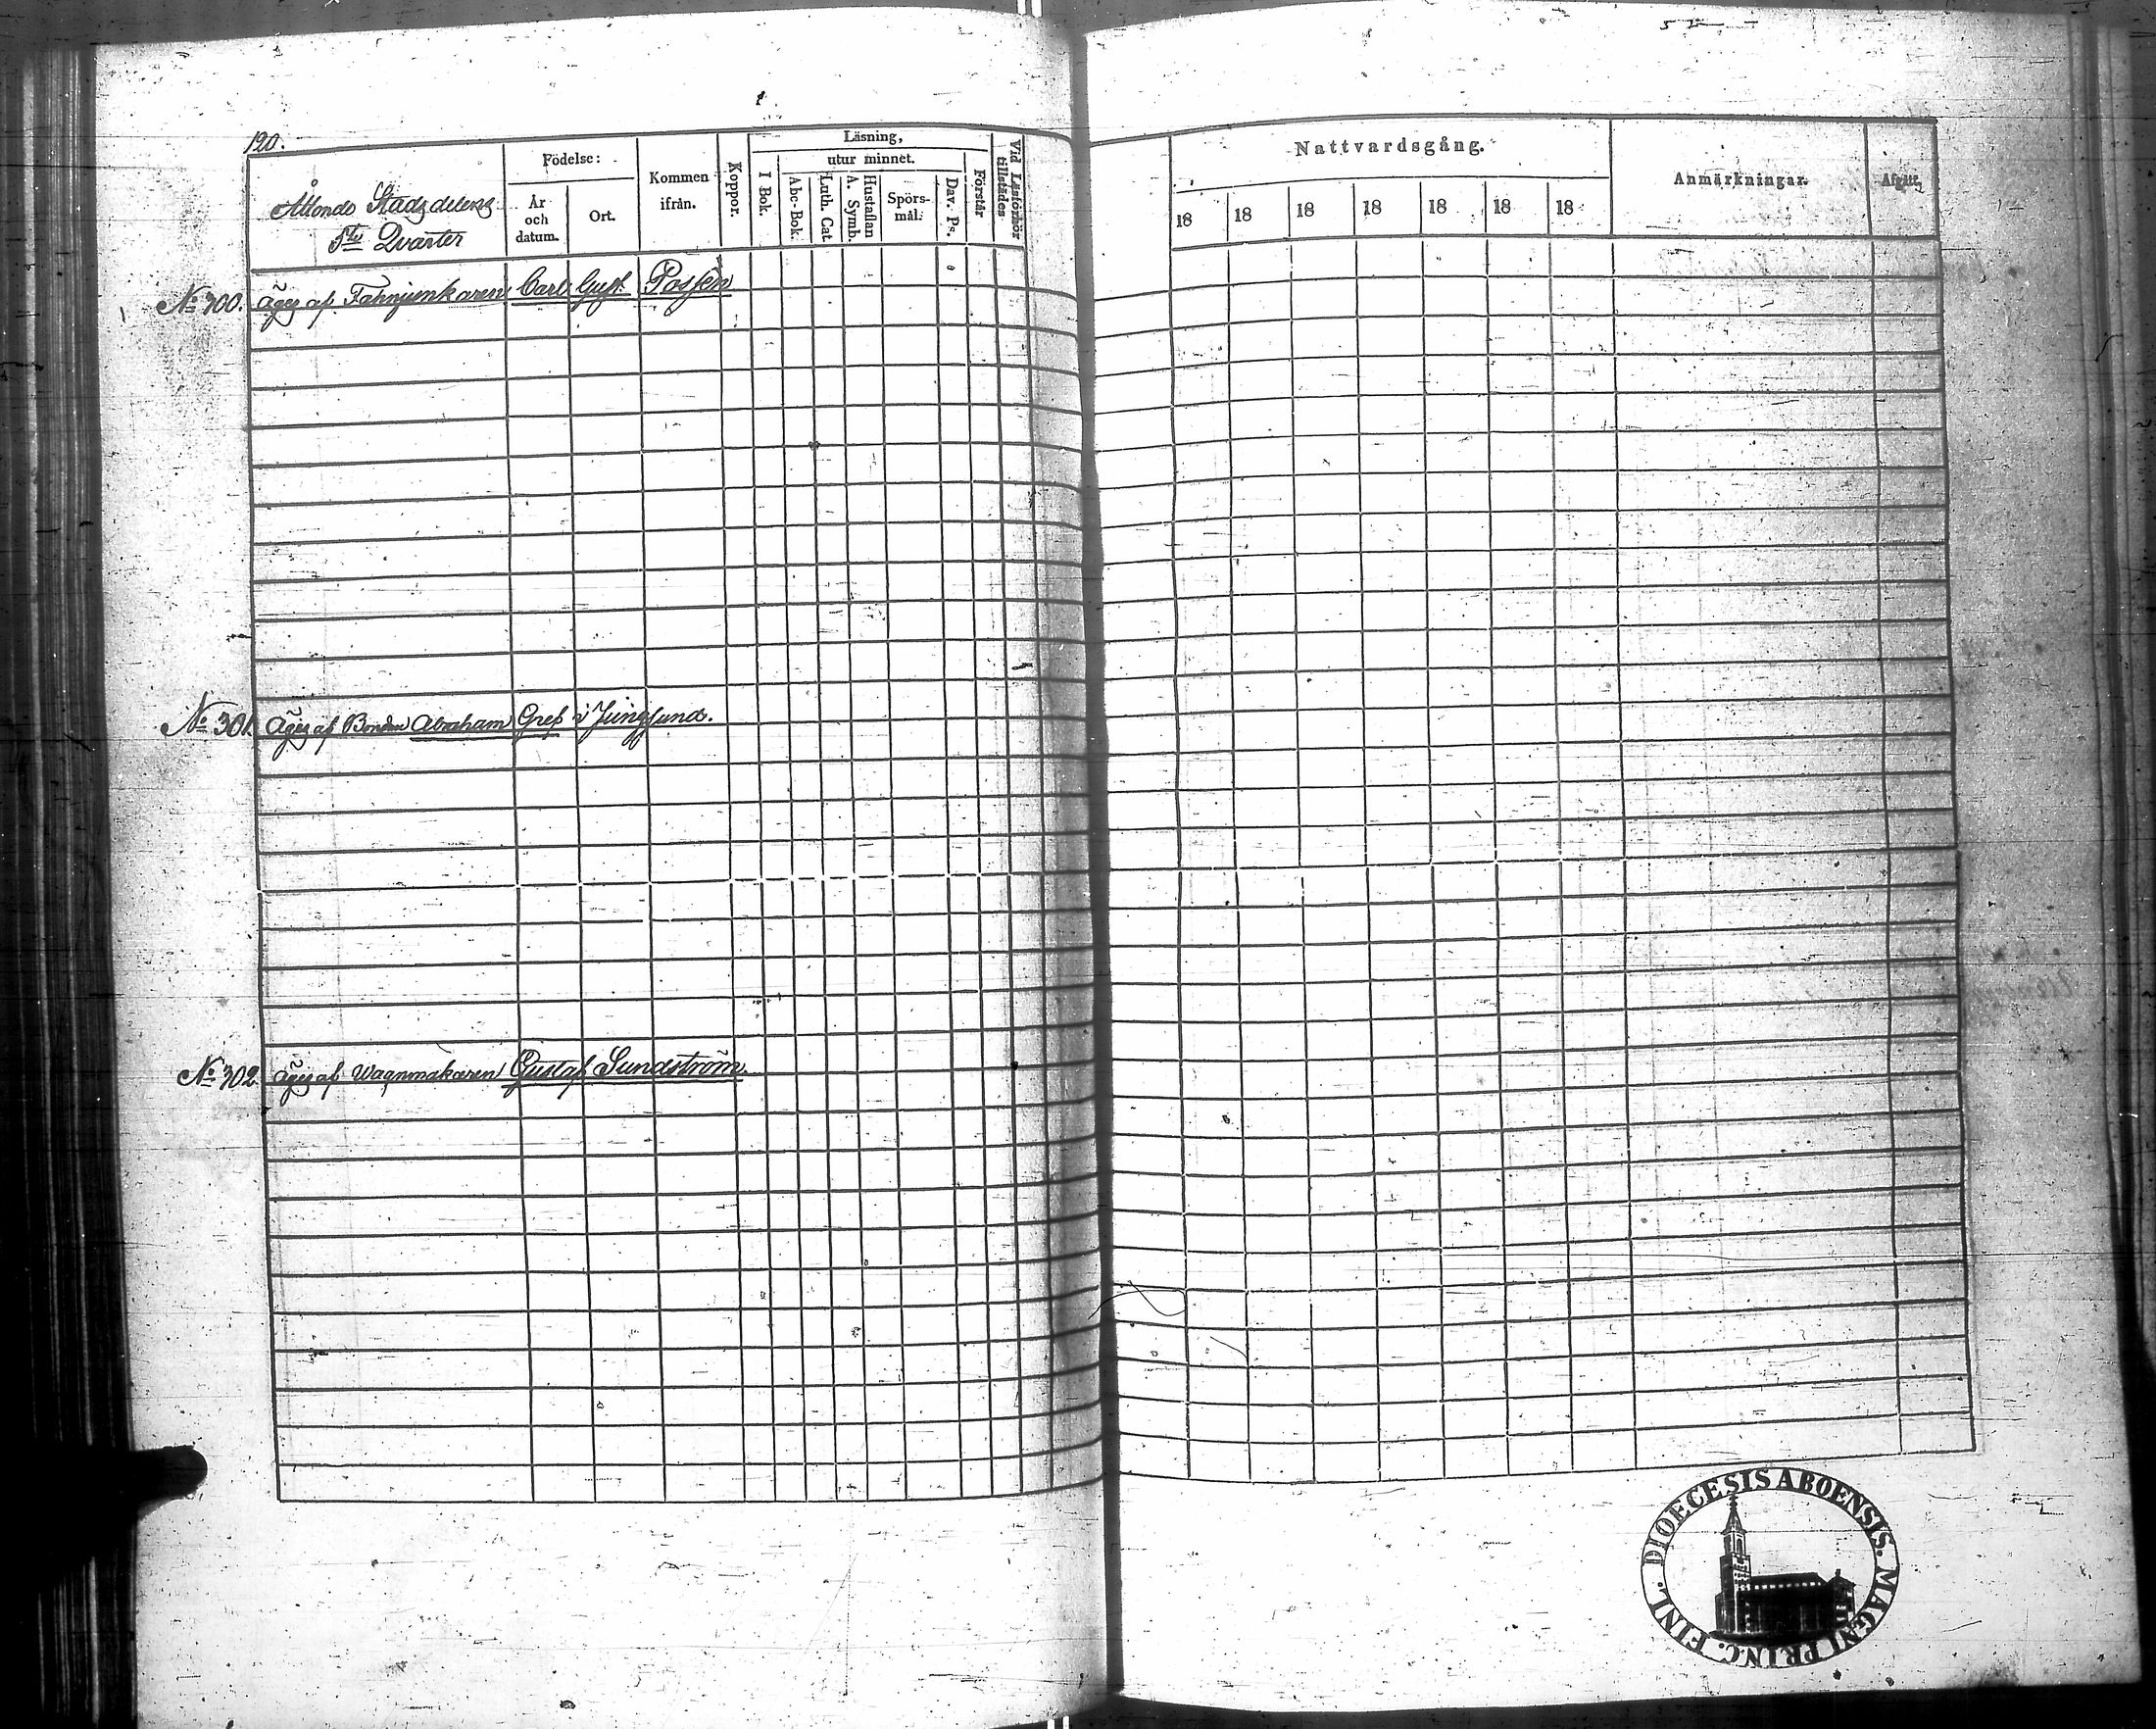 120.
Åttonde Stadsdelens
5te Qvarter
Födelse:
År
och
datum.
Ort.
Kommen
ifrån.
Koppor.
Läsning,
I Bok.
utur minnet.
Abc-Bok.
Luth. Cat.
Hustaflan
A. Symb.
Spörs-
mål.
Dav. Ps.
Förstår
Vid Läsförhör
tillstädes
Nattvardsgång.
18 18 18 18 18 18 18
Anmärkningar.
Afgått.
No 300. äges af Fahnjunkaren Carl Gust. Possen
No 301. äges af Bonden Abraham Gref i Jungsund.
No 302 äges af Wagnmakaren Gustaf Sundström
DIOECESIS ABOENSIS. MAGNI PRINC. FINL.